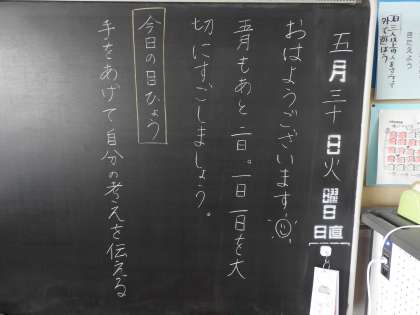 五月三十日火曜日
日直
おはようございます
五月もあと二日。一日一日を大
切にすごしましょう。
今日の目ひょう
手をあげて自分の考えを伝える